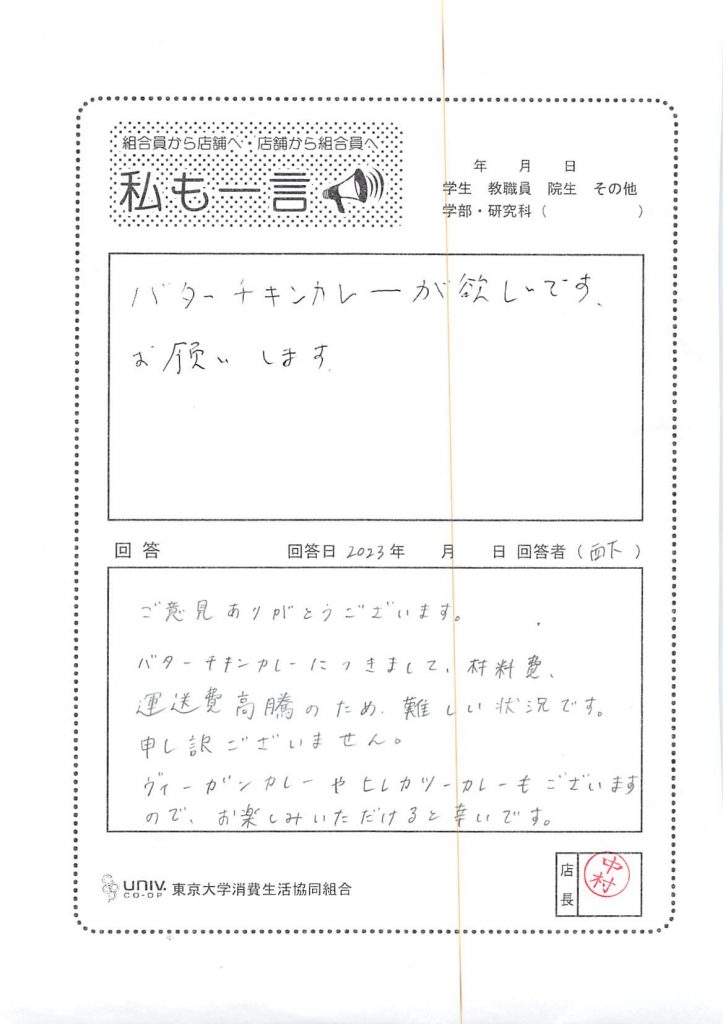 組合員から店舗へ・店舗から組合員へ
私も一言
年 月 日
学生 教職員 院生 その他
学部・研究科( )
バターチキンカレーが欲しいです、
お願いします。
回答 回答日 2023年 月 日 回答者( 西下 )
ご意見ありがとうございます。
バターチキンカレーにつきまして、材料費、
運送費高騰のため、難しい状況です。
申し訳ございません。
ヴィーガンカレーやヒレカツカレーもございます
ので、お楽しみいただけると幸いです。
UNIV. CO-OP 東京大学消費生活協同組合
店長
中村